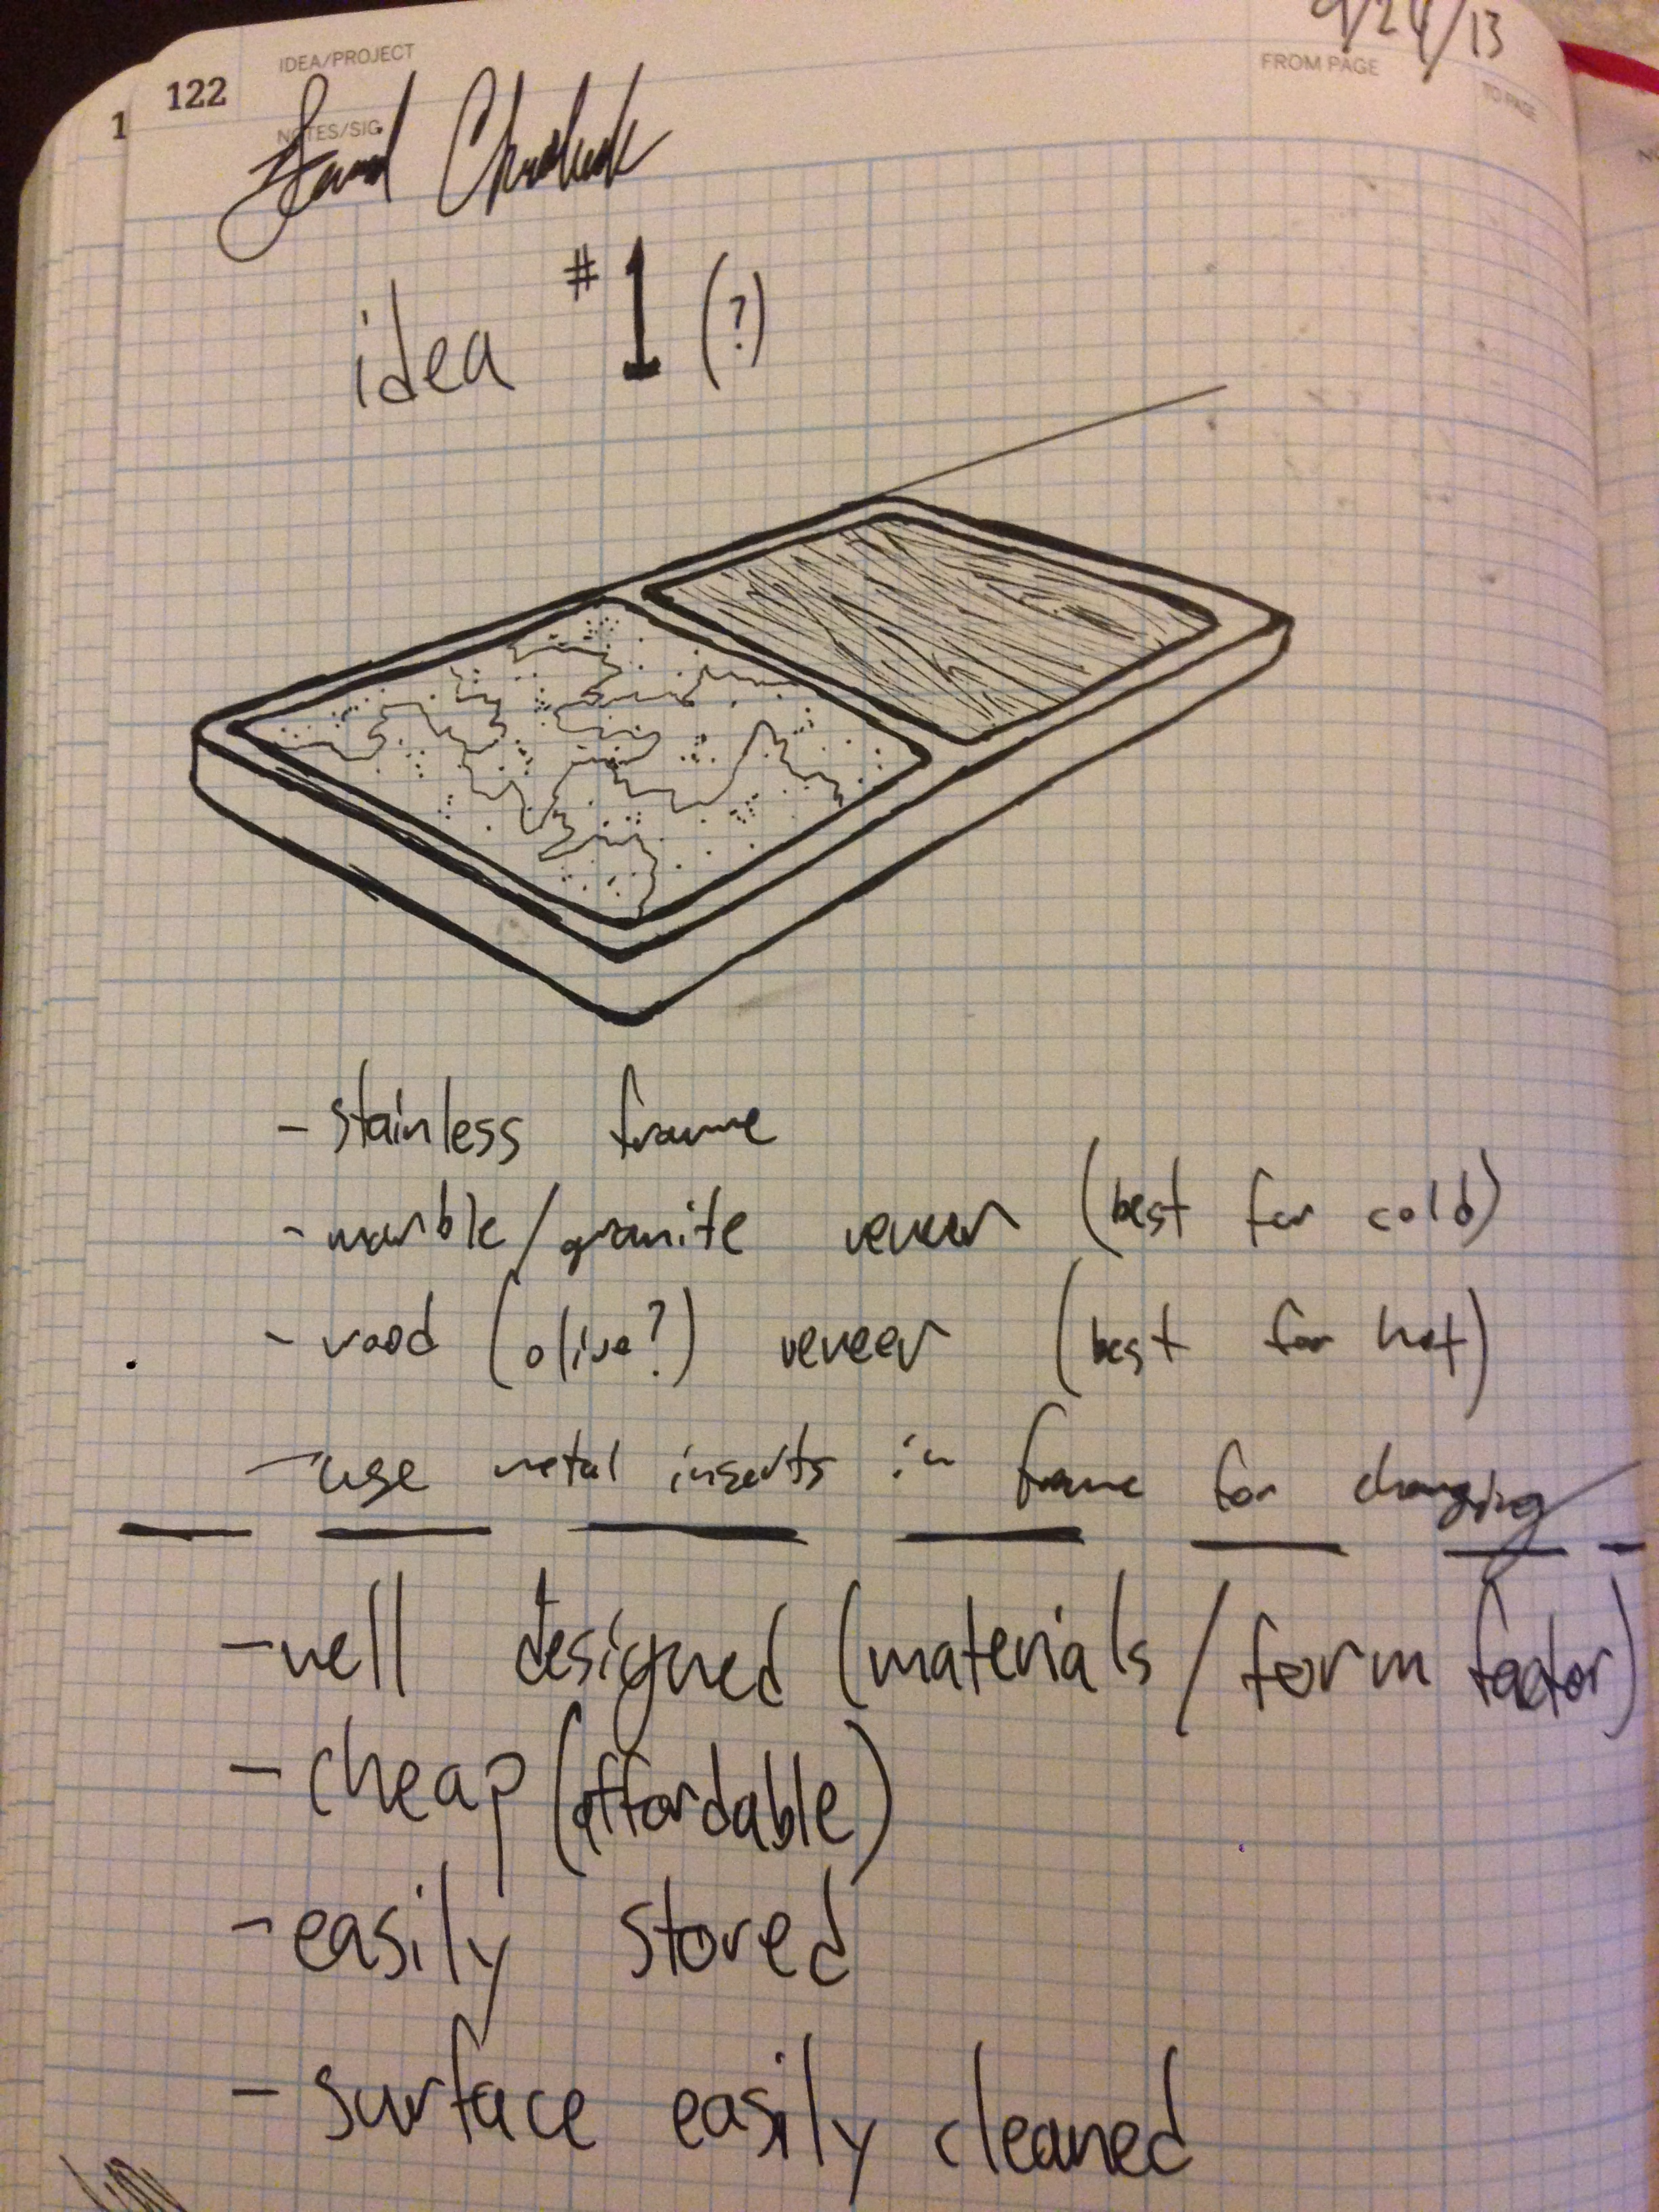 9/24/13
122 IDEA/PROJECT
FROM PAGE
TO PAGE
1
NOTES/SIG
idea #1 (?)
- stainless frame
- marble/granite veneer (best for cold)
- wood (olive?) veneer (best for hot)
- use metal inserts in frame for changing
- well designed (materials/form factor)
- cheap (affordable)
- easily stored
- surface easily cleaned